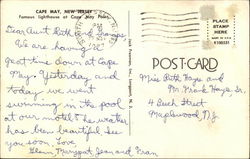 CAPE MAY, NEW JERSEY
Famous lighthouse at Cape May Point.
Dear Aunt Ruth and Gramps
We are having a
great time down at Cape
May. Yesterday and
today we went
swimming in the pool
at our motel & the weather
has been beautiful. See
you soon. Love
Jean and Fran
POST CARD
PLACE
STAMP
HERE
Miss Ruth Hays and
Mr. Frank Hays Sr.
4 Beech Street
Maplewood, N.J.